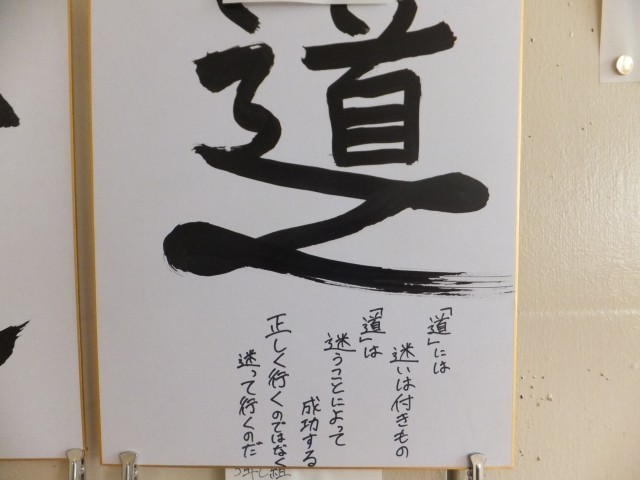 道
「道」には
迷いは付きもの
「道」は
迷うことによって
成功する
正しく行くのではなく
迷って行くのだ